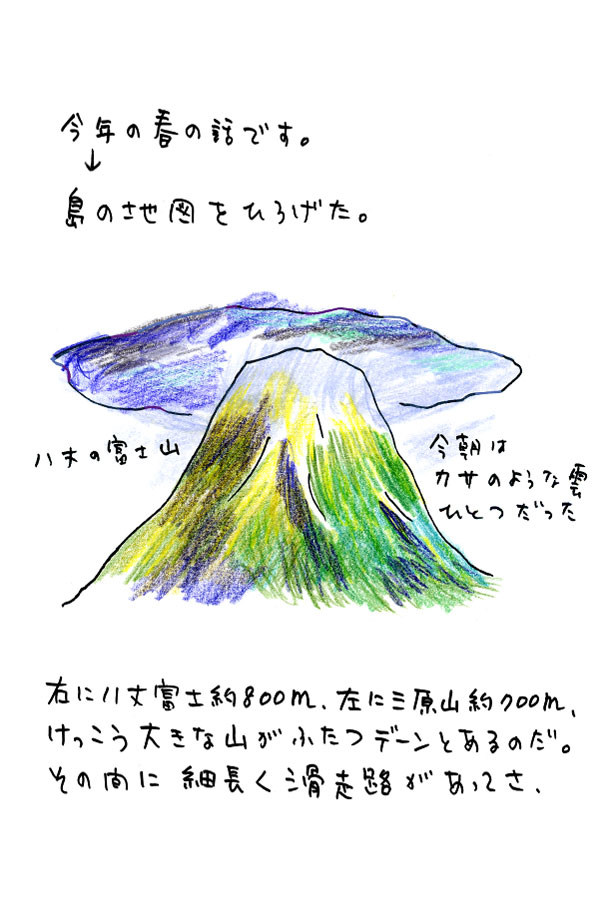 今年の春の話です。
↓
島の地図をひろげた。
八丈の富士山
今朝は
カサのような雲
ひとつだった
右に八丈富士約800m、左に三原山約700m、
けっこう大きな山がふたつデーンとあるのだ。
その間に細長く滑走路があってさ、